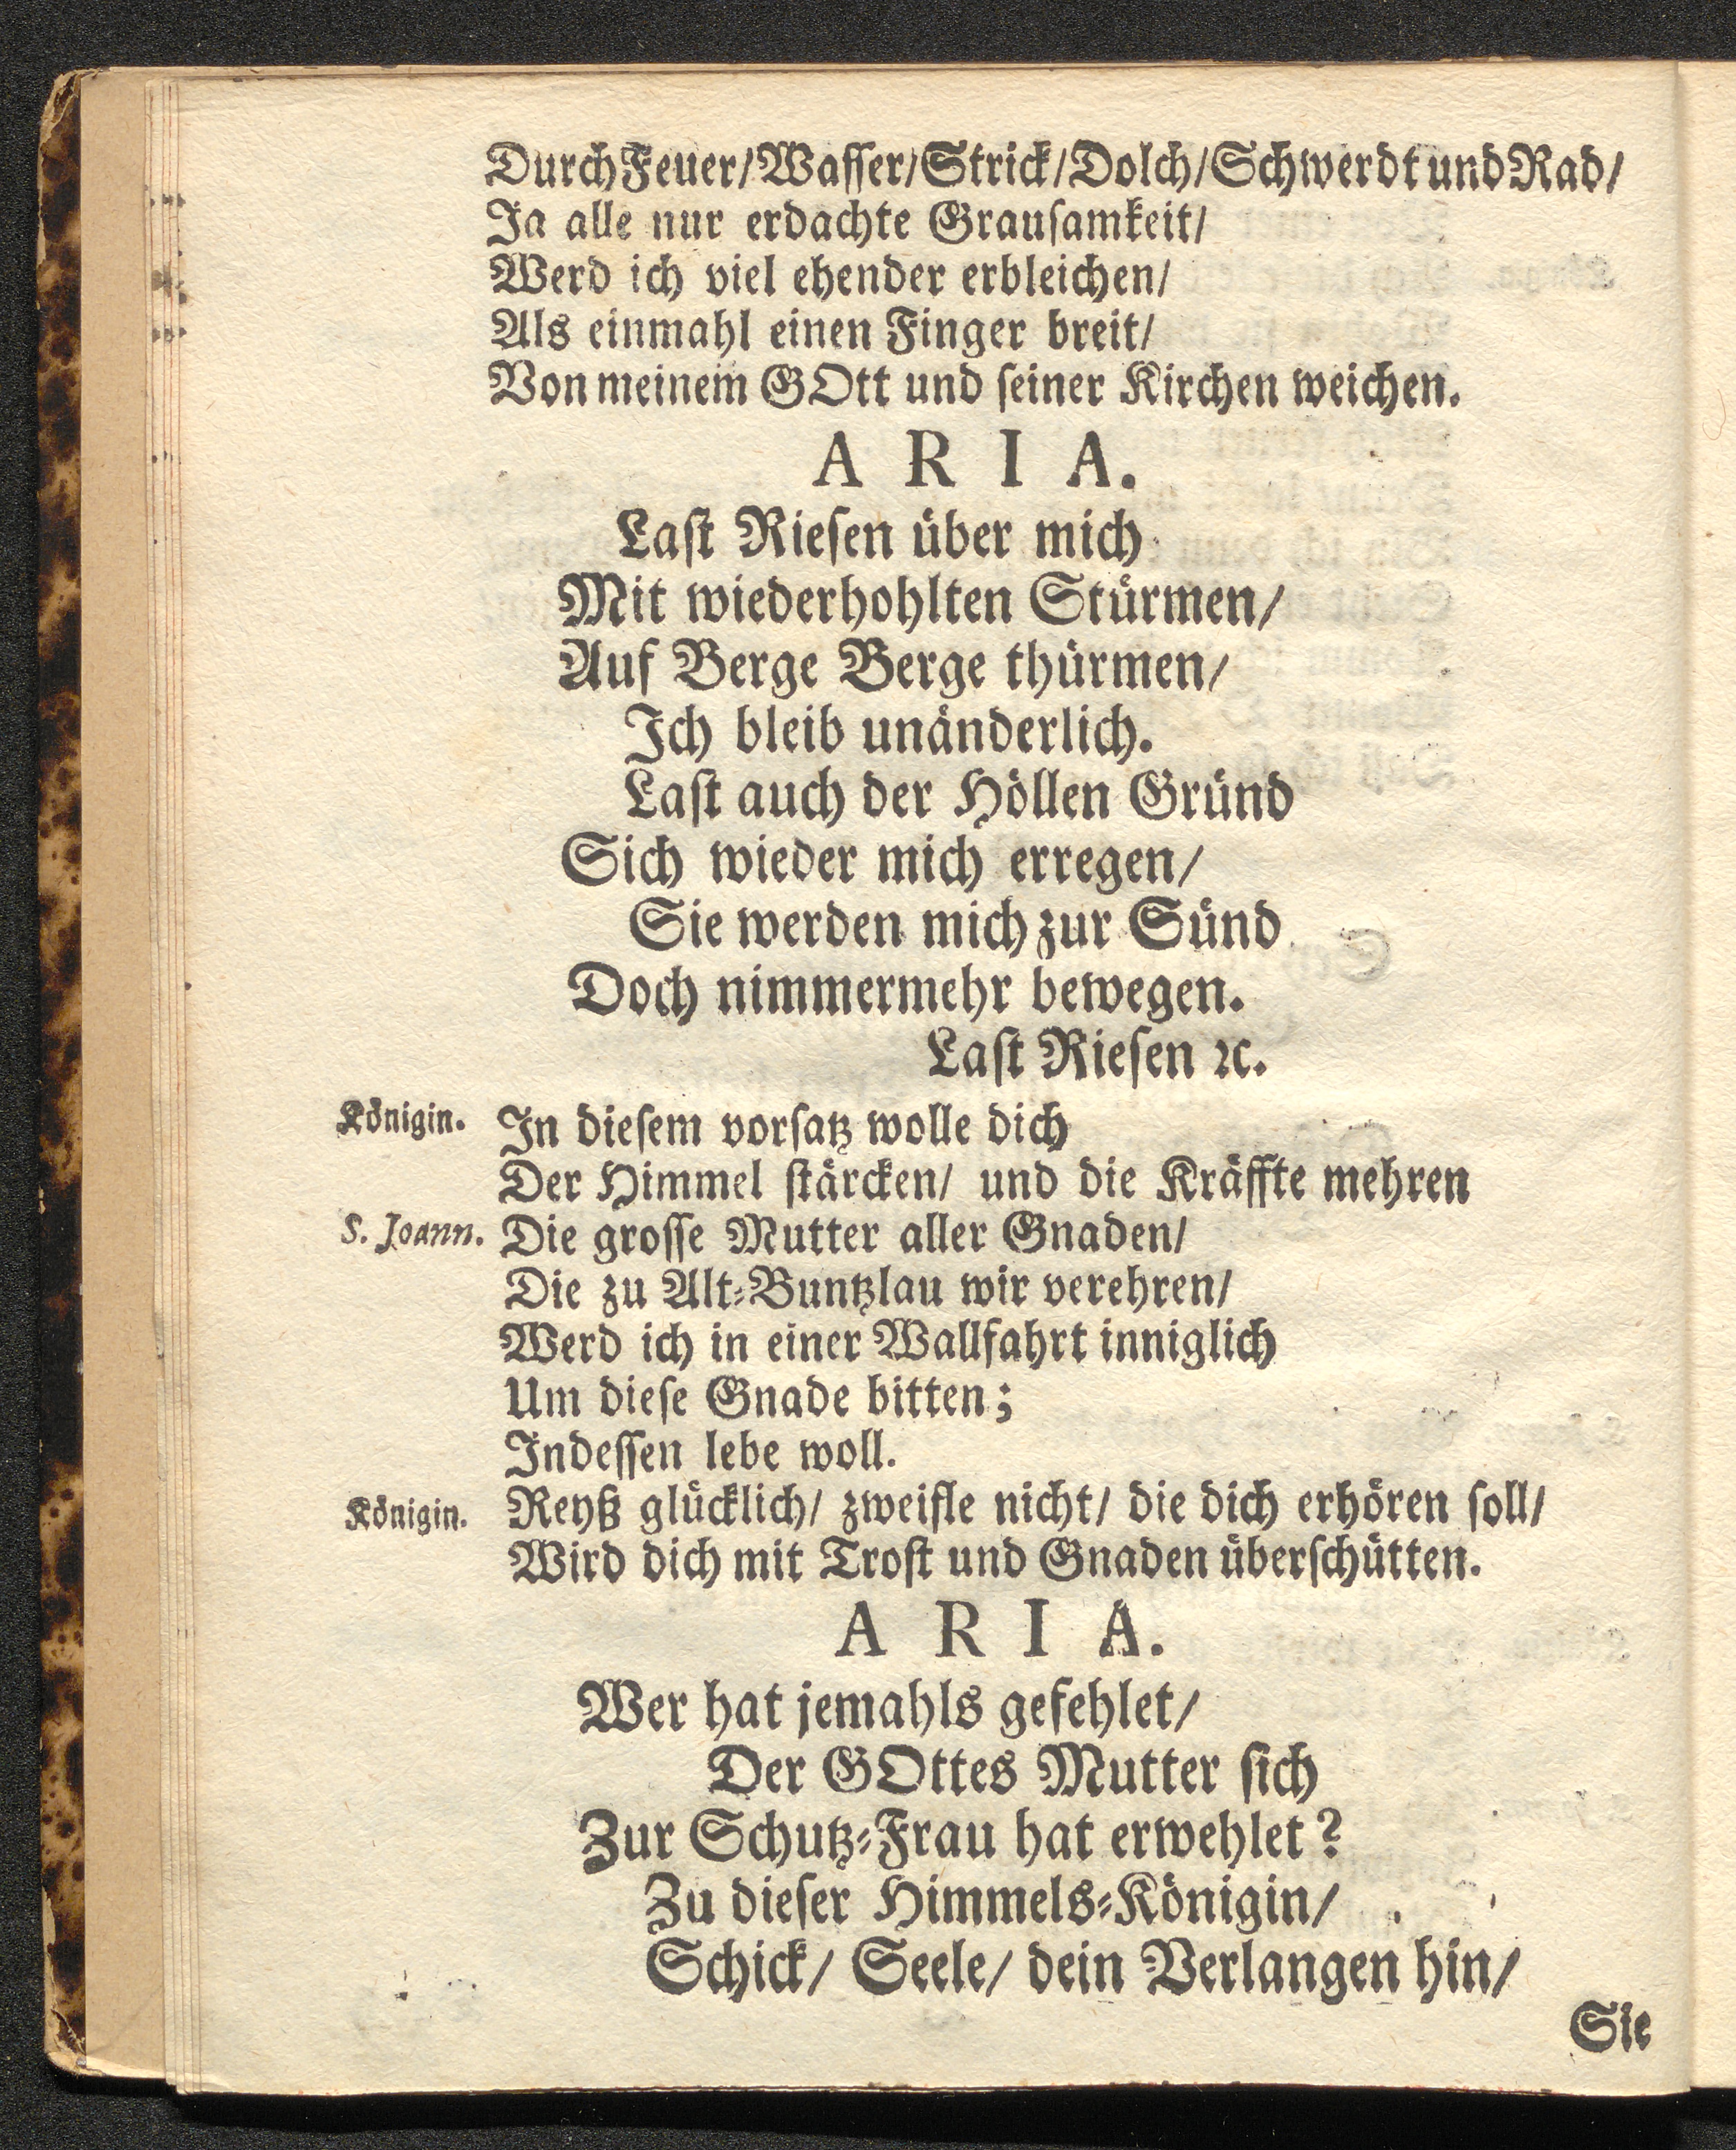 Durch Feuer/Wasser/Strick/Dolch/Schwerdt und Rad/
Ja alle nur erdachte Grausamkeit/
Werd ich viel ehender erbleichen/
Als einmahl einen Finger breit/
Von meinem GOtt und seiner Kirchen weichen.
ARIA.
Last Riesen über mich
Mit wiederhohlten Stürmen/
Auf Berge Berge thürmen/
Ich bleib unänderlich.
Last auch der Höllen Gründ
Sich wieder mich erregen/
Sie werden mich zur Sünd
Doch nimmermehr bewegen.
Last Riesen ꝛc.
Königin. In diesem vorsatz wolle dich
Der Himmel stärcken/ und die Kräffte mehren
S. Joann. Die grosse Mutter aller Gnaden/
Die zu Alt-Buntzlau wir verehren/
Werd ich in einer Wallfahrt inniglich
Um diese Gnade bitten;
Indessen lebe woll.
Königin. Reyß glücklich/ zweifle nicht/ die dich erhören soll/
Wird dich mit Trost und Gnaden überschütten.
ARIA.
Wer hat jemahls gefehlet/
Der GOttes Mutter sich
Zur Schutz-Frau hat erwehlet?
Zu dieser Himmels-Königin/
Schick/ Seele/ dein Verlangen hin/
Sie